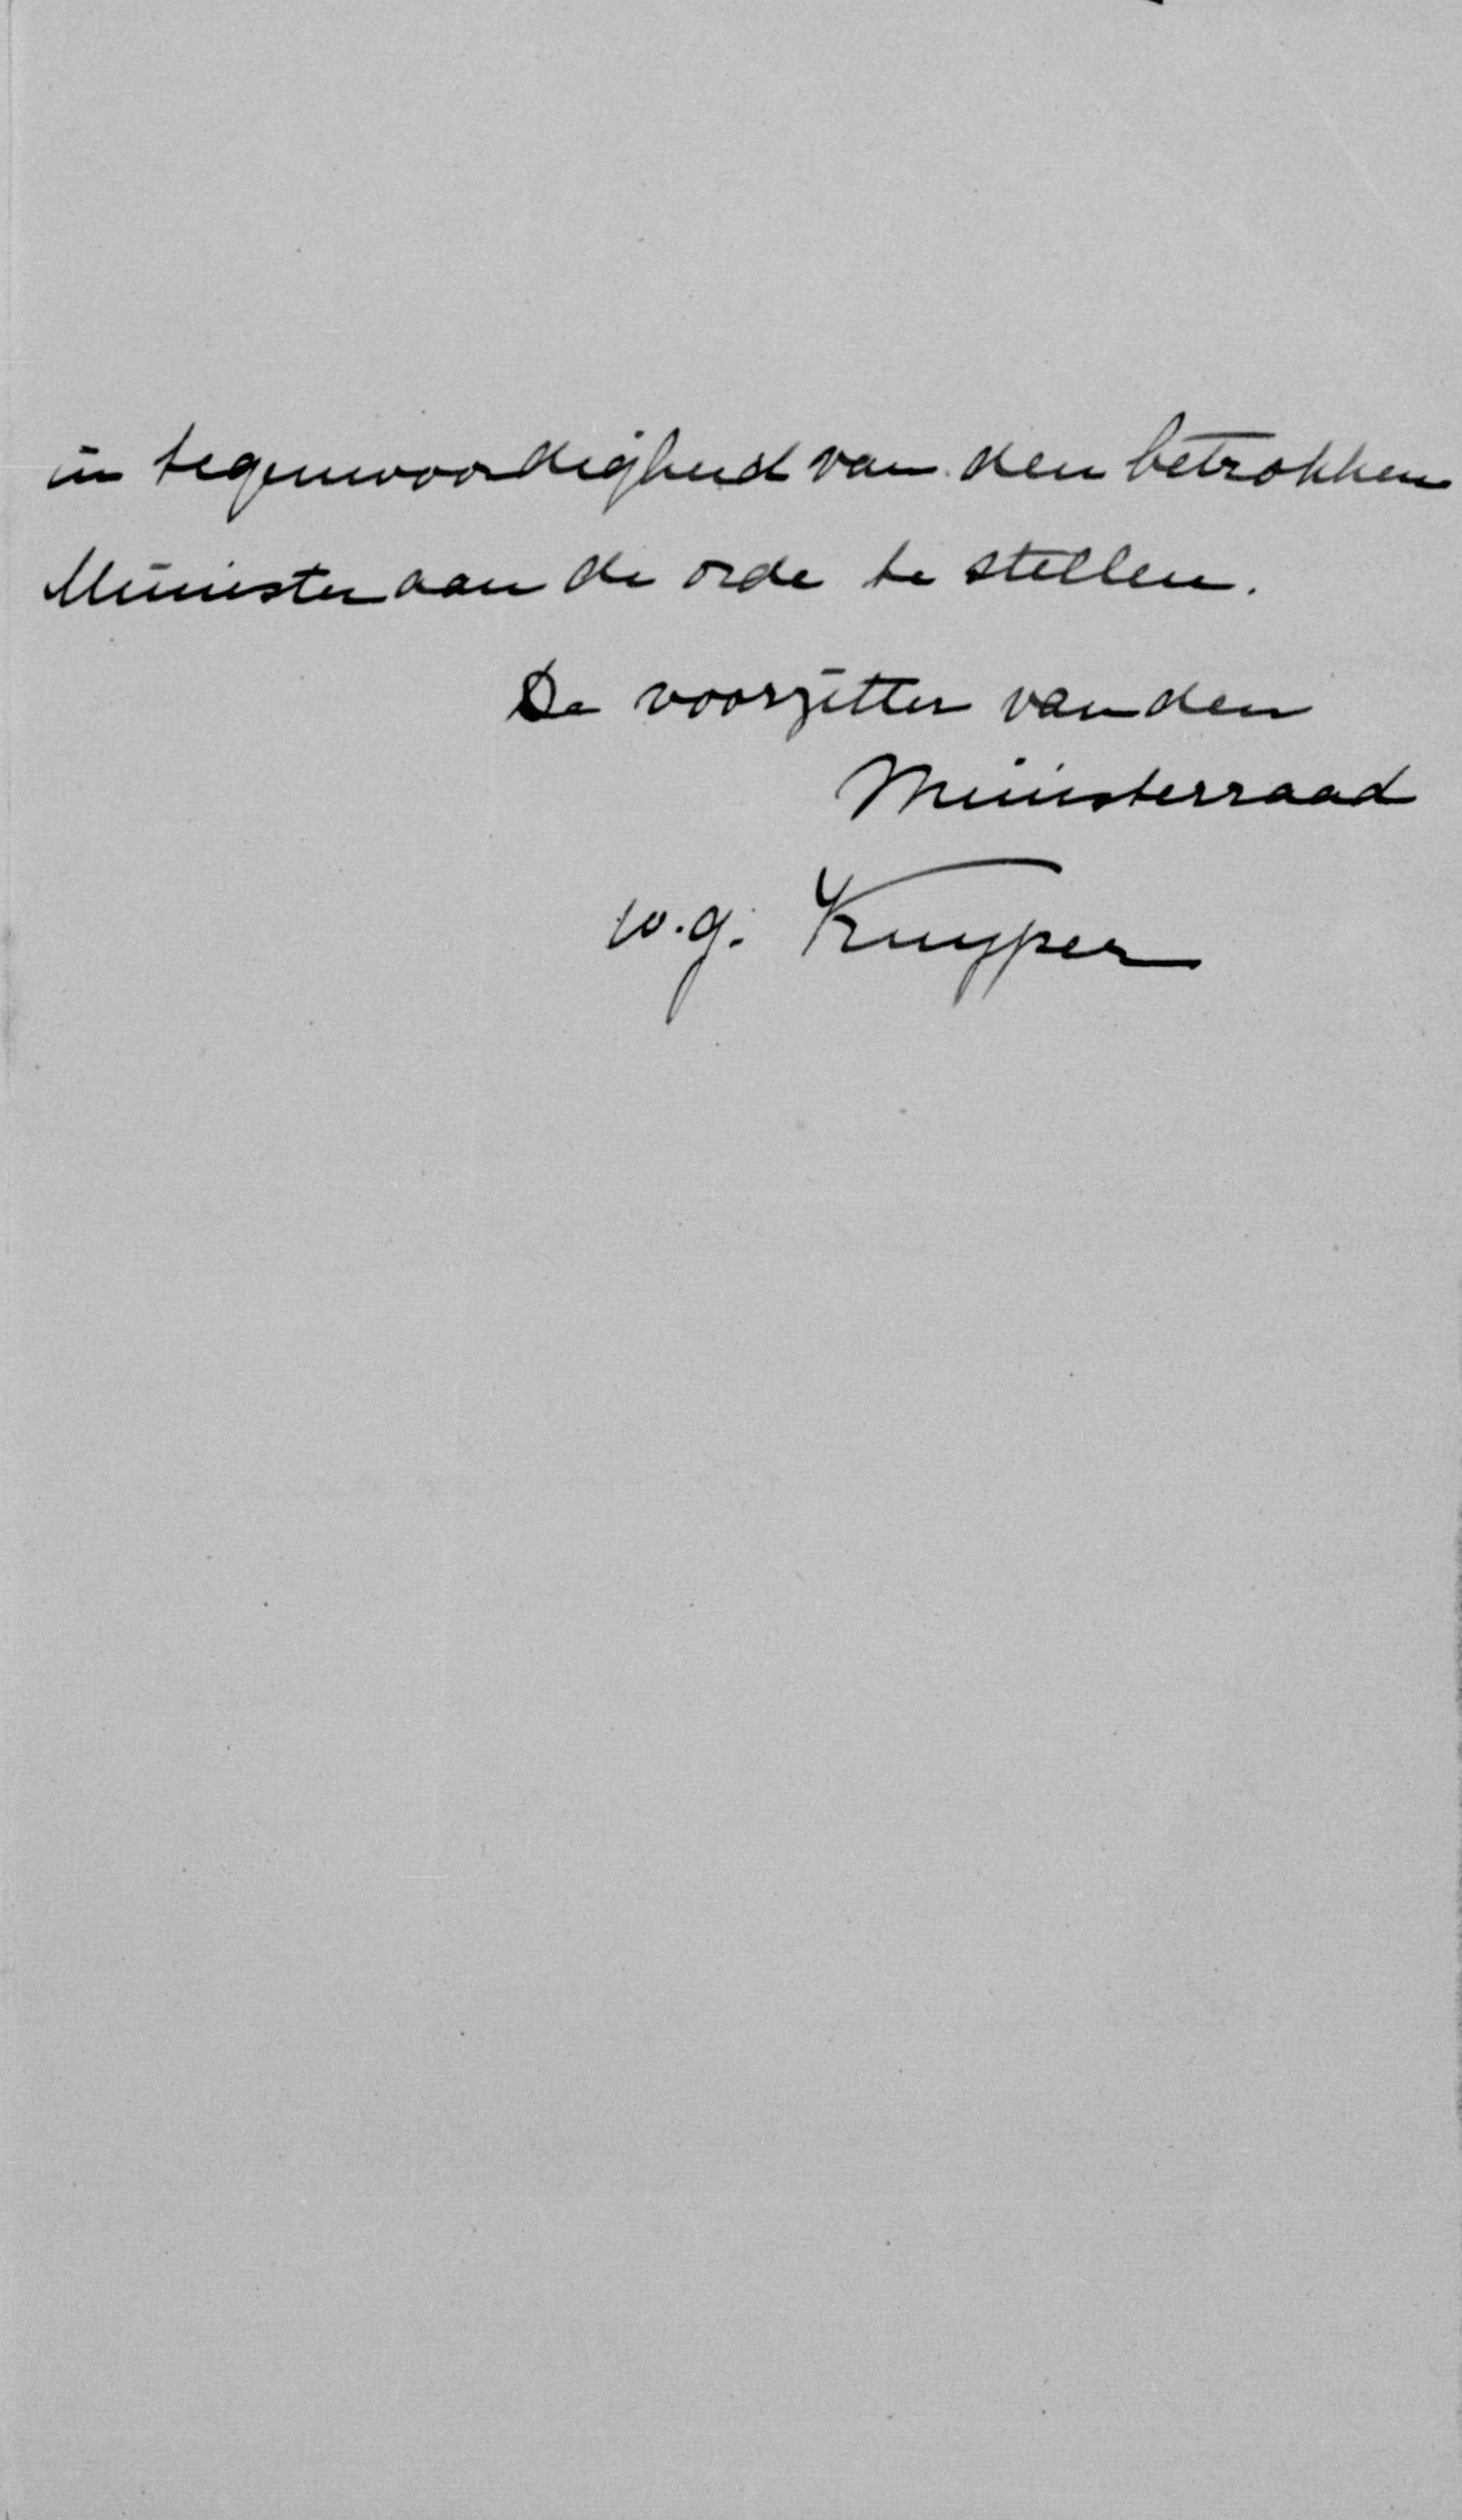 in tegenwoordigheid van den betrokken
Minister aan de orde te stellen.
De voorzitter van den
Ministerraad
w.g. Kuyper